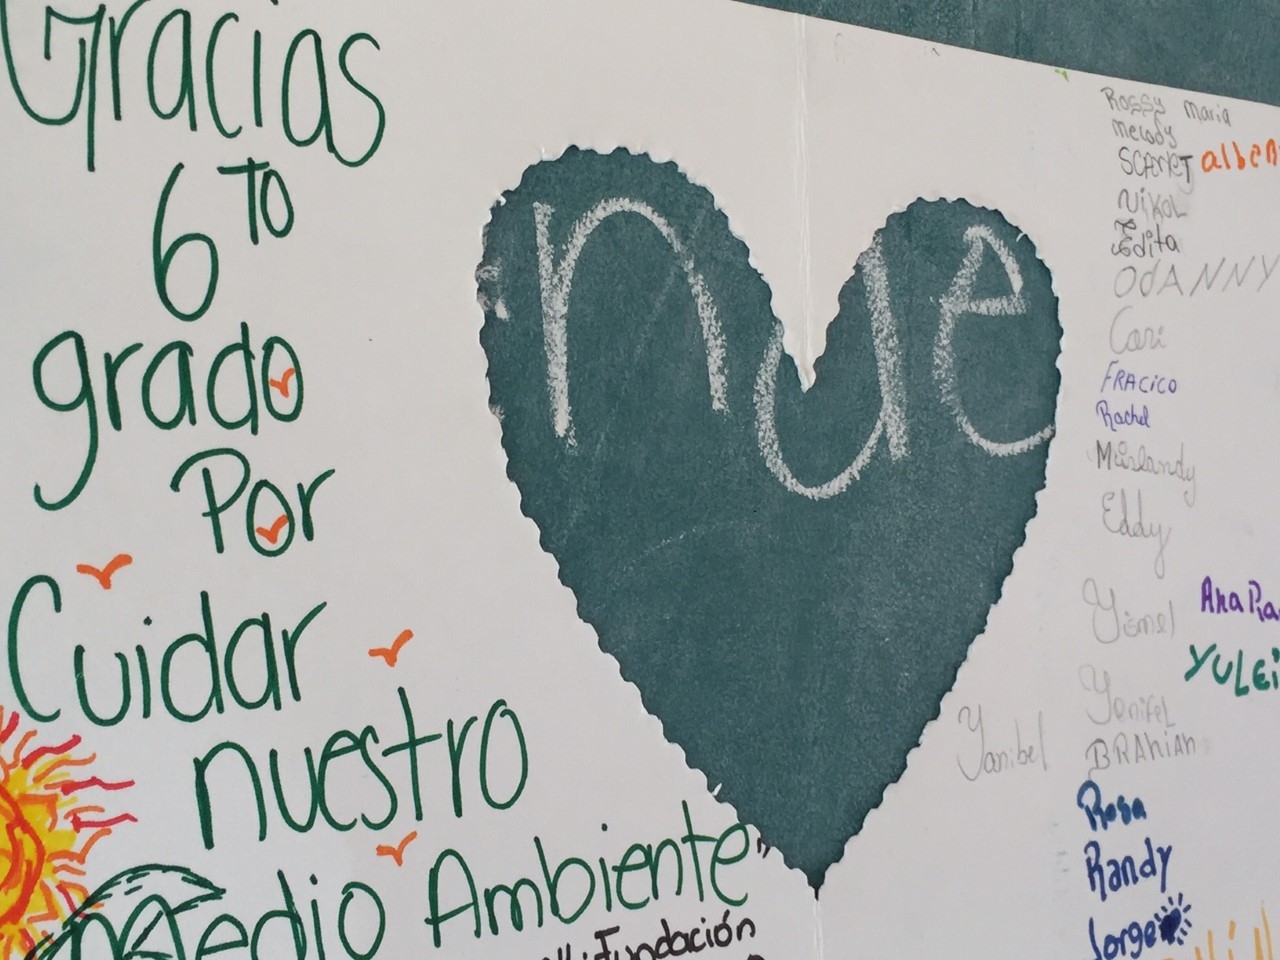 Gracias
6TO
grado
Por
Cuidar
nuestro
Medio Ambiente"
Fundación
nue
Rossy Maria
melody
SCARleT
NiKOL
Edita
OdANNY
Cari
FRACiCO
Rachel
Eddy
Yismel
Yenifel
Yanibel BRAhiAn
Rosa
Randy
Jorge